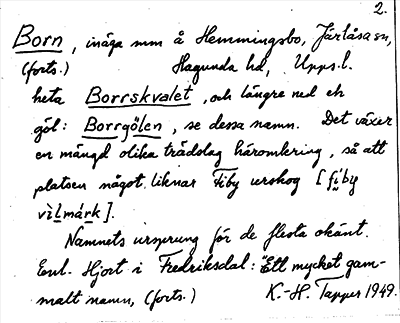 2.
Born, inäga mm å Hemmingsbo, Järlåsa sn,
(forts.) Hagunda hd, Upps. l.
heta Borrskvalet, och längre ned en
göl: Borrgölen, se dessa namn. Det växer
en mängd olika trädslag häromkring, så att
platsen något liknar Fiby urskog [fi̤by
vìlmárk].
Namnets ursprung för de flesta okänt.
Enl. Hjort i Fredriksdal: "Ett mycket gam-
malt namn, (forts.) K.-H. Tapper 1949.